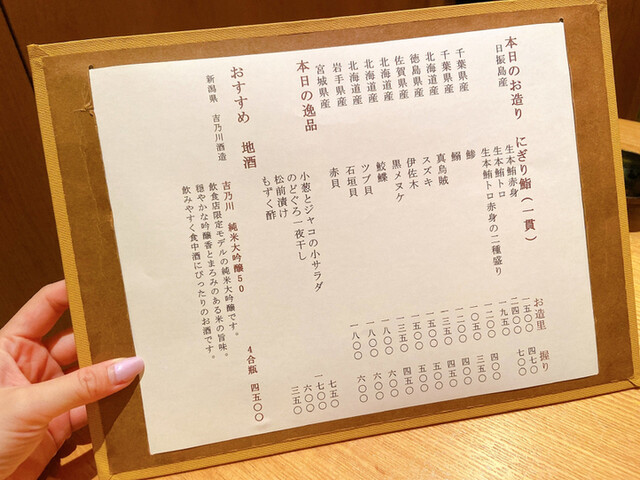 本日のお造り　にぎり鮨（一貫）　お造里　握り
日振島産　生本鮪赤身　一五〇〇　四七〇
生本鮪トロ　二四〇〇　七〇〇
生本鮪トロ赤身の二種盛り　一九五〇
千葉県産　鯵　一二〇〇　四〇〇
千葉県産　鰯　一〇五〇　三五〇
北海道産　真烏賊　一二〇〇　四〇〇
徳島県産　スズキ　一三五〇　四五〇
佐賀県産　伊佐木　一五〇〇　五五〇
北海道産　黒メヌケ　一五〇〇　五五〇
北海道産　鮫鰈　一三五〇　四五〇
北海道産　ツブ貝　一八〇〇　六〇〇
岩手県産　石垣貝　一八〇〇　六〇〇
宮城県産　赤貝　一八〇〇　六〇〇
本日の逸品
小葱とジャコの小サラダ　七五〇
のどぐろ一夜干し　一七〇〇
松前漬け　六〇〇
もずく酢　三五〇
おすすめ　地酒
新潟県　吉乃川酒造
吉乃川　純米大吟醸５０　４合瓶　四五〇〇
飲食店限定モデルの純米大吟醸です。
穏やかな吟醸香とまろみのある米の旨味。
飲みやすく食中酒にぴったりのお酒です。